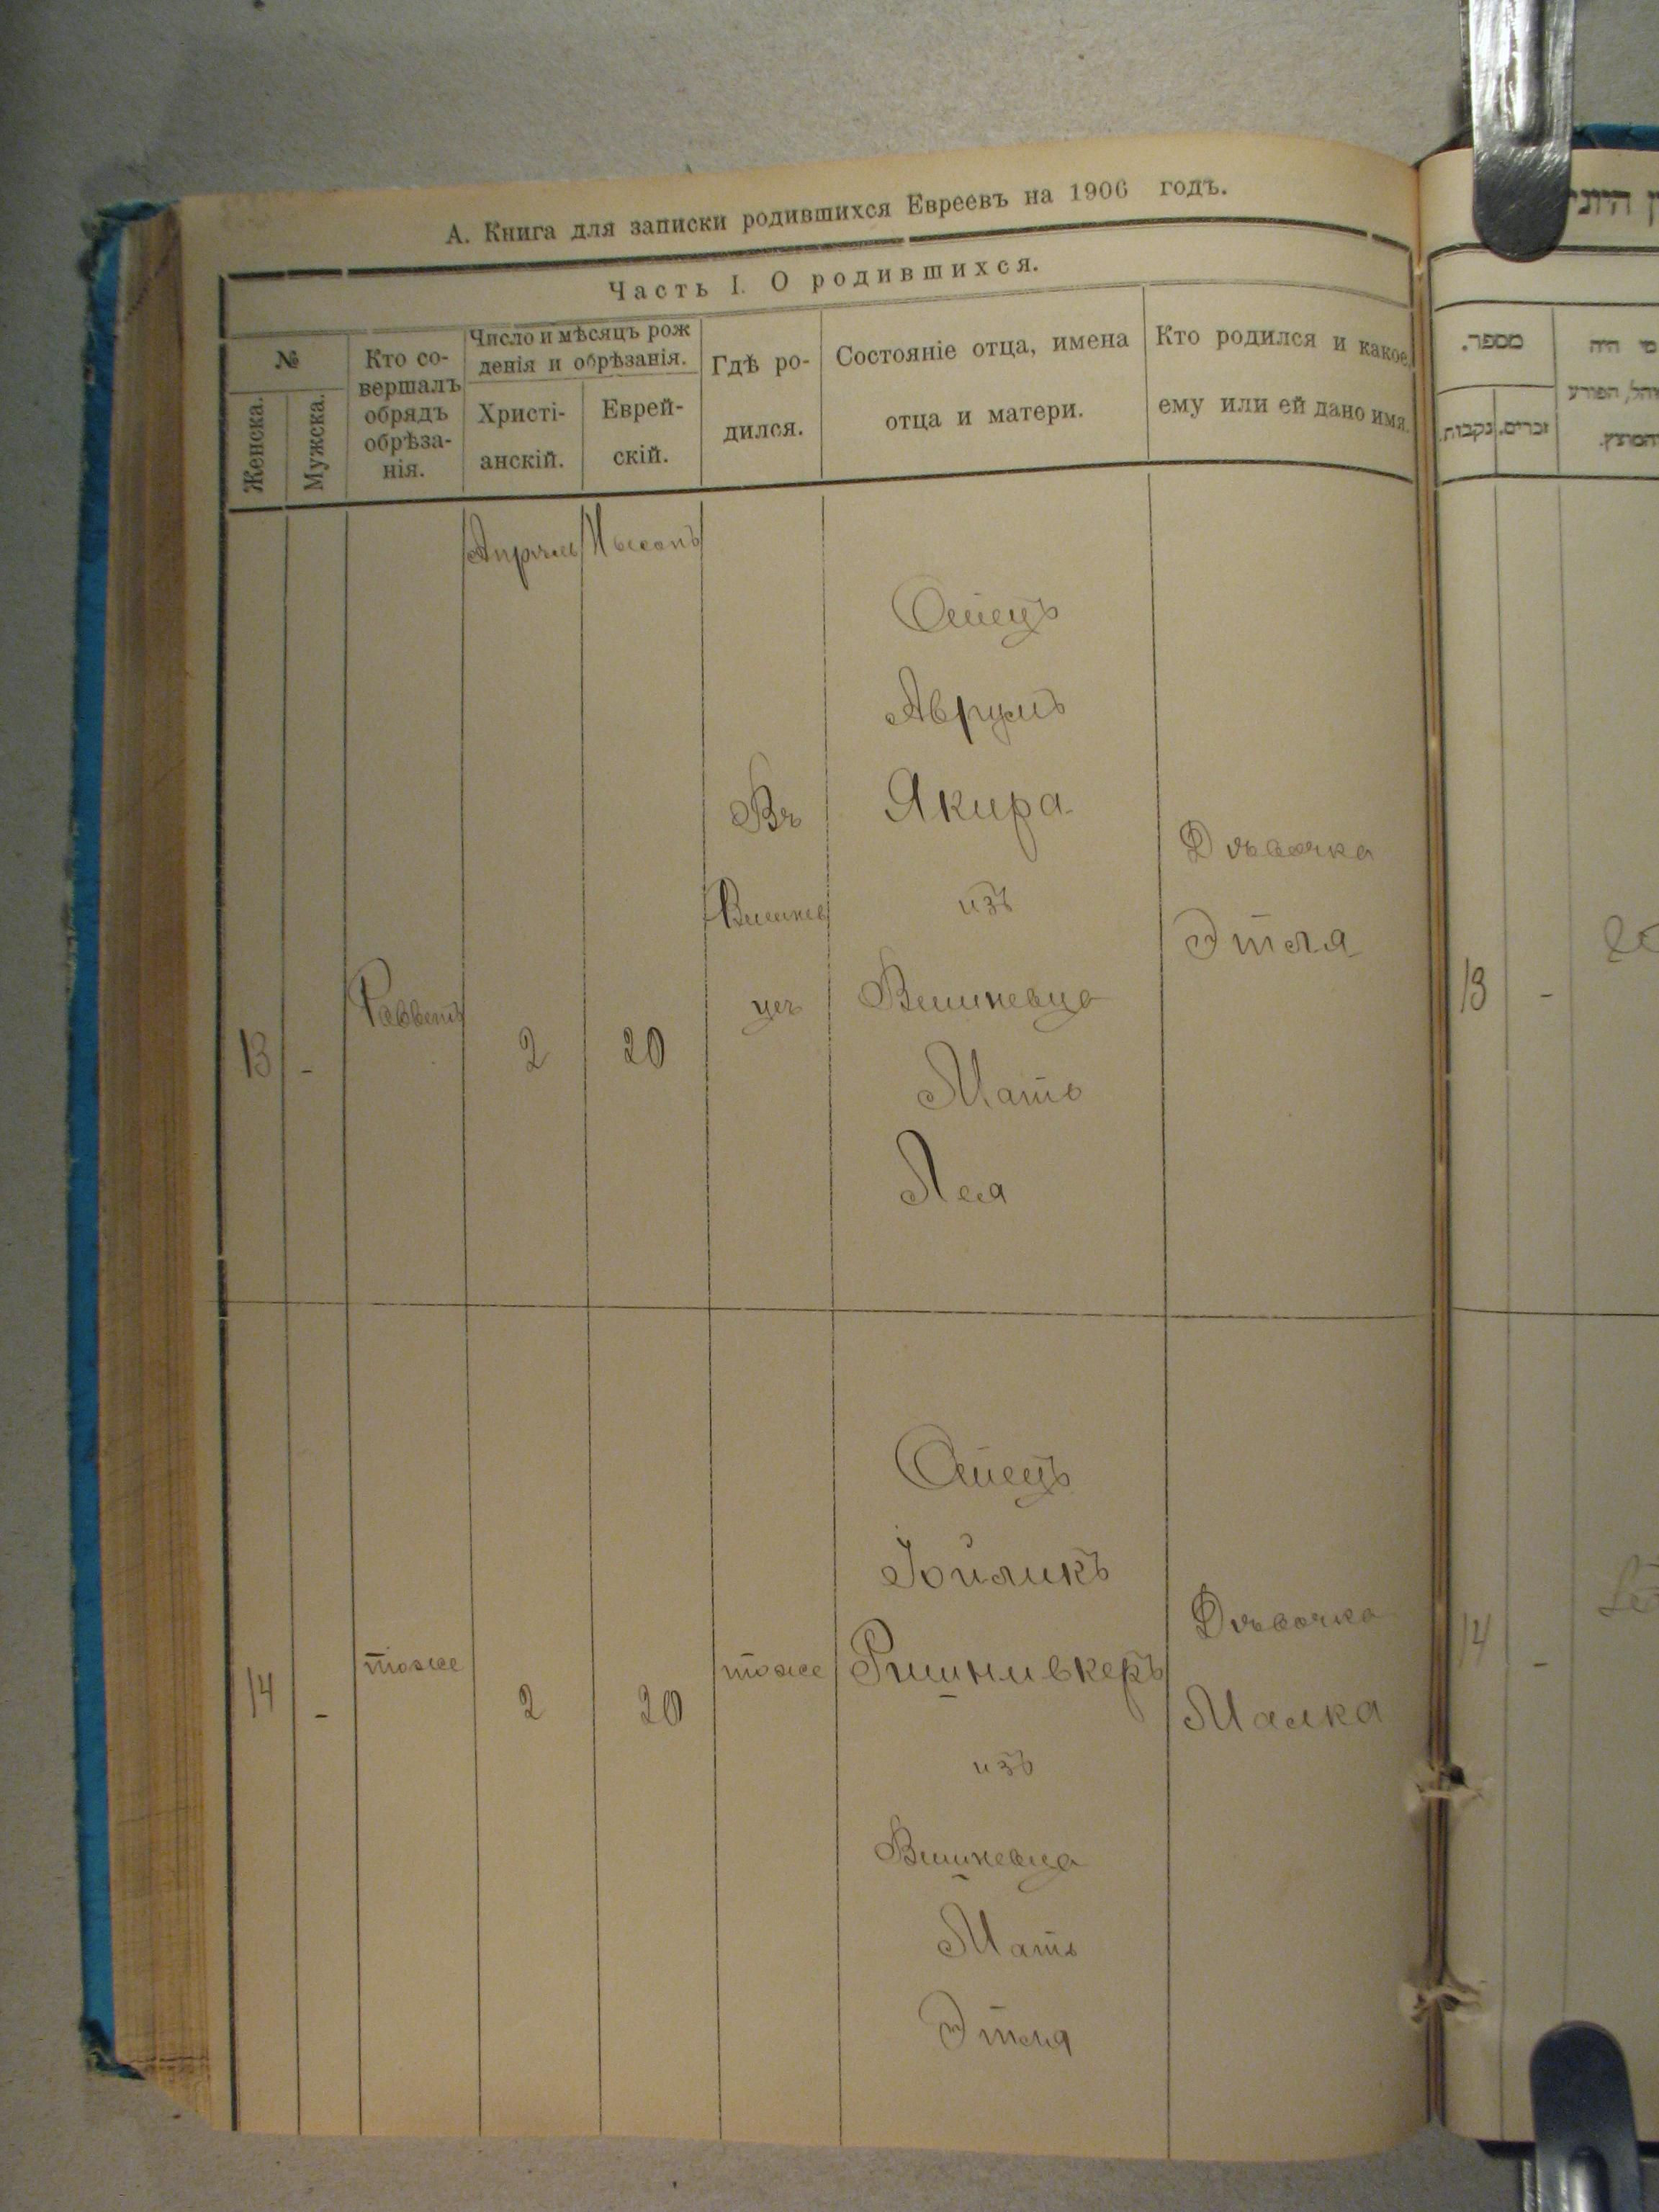 А. Книга для записки родившихся Евреевъ на 1906 годъ.
Часть I. О родившихся.
№
Женска.
Мужска.
Кто со-
вершалъ
обрядъ
обрѣза-
нія.
Число и мѣсяцъ рож
денія и обрѣзанія.
Христі-
анскій.
Еврей-
скій.
Гдѣ ро-
дился.
Состояніе отца, имена
отца и матери.
Кто родился и какое
ему или ей дано имя.
13
-
Апрѣль
2
20
Въ
Вишнев
цѣ
Отецъ
Аврумъ
Якира
изъ
Вишневца
Мать
Лея
Дѣвочка
Этля
14
-
тоже
2
20
тоже
Отецъ
Іойликъ
изъ
Вишневца
Мать
Этля
Дѣвочка
Малка
מספר.
נקבות.
זכרים.
מי היה
13
-
14
-